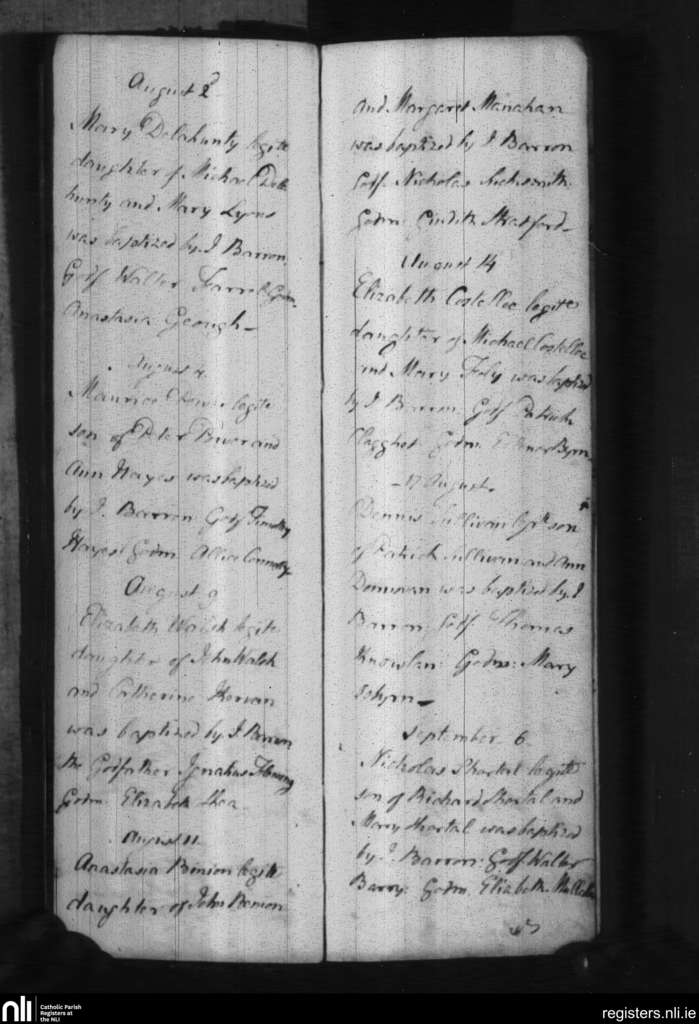 August 2d
Mary Delahunty legite
daughter of Michael Dela
hunty and Mary Lyons
was baptized by J Barron.
Godf Walter Farrel Godm.
Anastasia Geough—
August
Maurice Power legite
son of Peter Power and
Ann Hayes was baptized
by J. Barron Godf Timothy
Hayes Godm Allice Connolly
August 9
Elizabeth Walsh legite
daughter of John Walsh
and Catherine
was baptized by J Barron
the Godfather Ignatius Fleming
Godm Elizabeth Shea
August 11
Anastasia Binion legite
daughter of John Benion
and Margaret Manahan
was baptized by J Barron
Godf. Nicholas
Godm. Judith Stratford—
August 14
Elizabeth Costelloe legite
daughter of Michael Costelloe
and Mary Foly was baptized
by J Barron Godf Patrick
Godm. Elenor Byrn
—17 August.
Dennis Sullivan son
of Patrick Sullivan and Ann
Donovan was baptized by J
Barron Godf Thomas
Knowlan: Godm: Mary
September 6
Nicholas Shortal legite
son of Richard Shortal and
Mary Shortal was baptized
by J. Barron Godf Walter
Barry: Godm Elizabeth
nli
Catholic Parish
Registers at
the NLI
registers.nli.ie